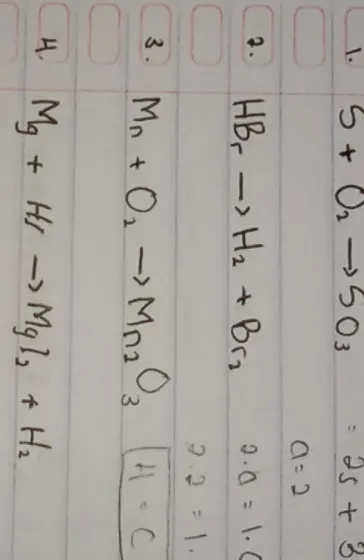 1. S + O₂ → SO₃ = 2S + 3
a = 2
2. HBr → H₂ + Br₂ 2.a = 1.
2.2 = 1.
3. Mn + O₂ → Mn₂O₃ H = C
4. Mg + → MgI₂ + H₂